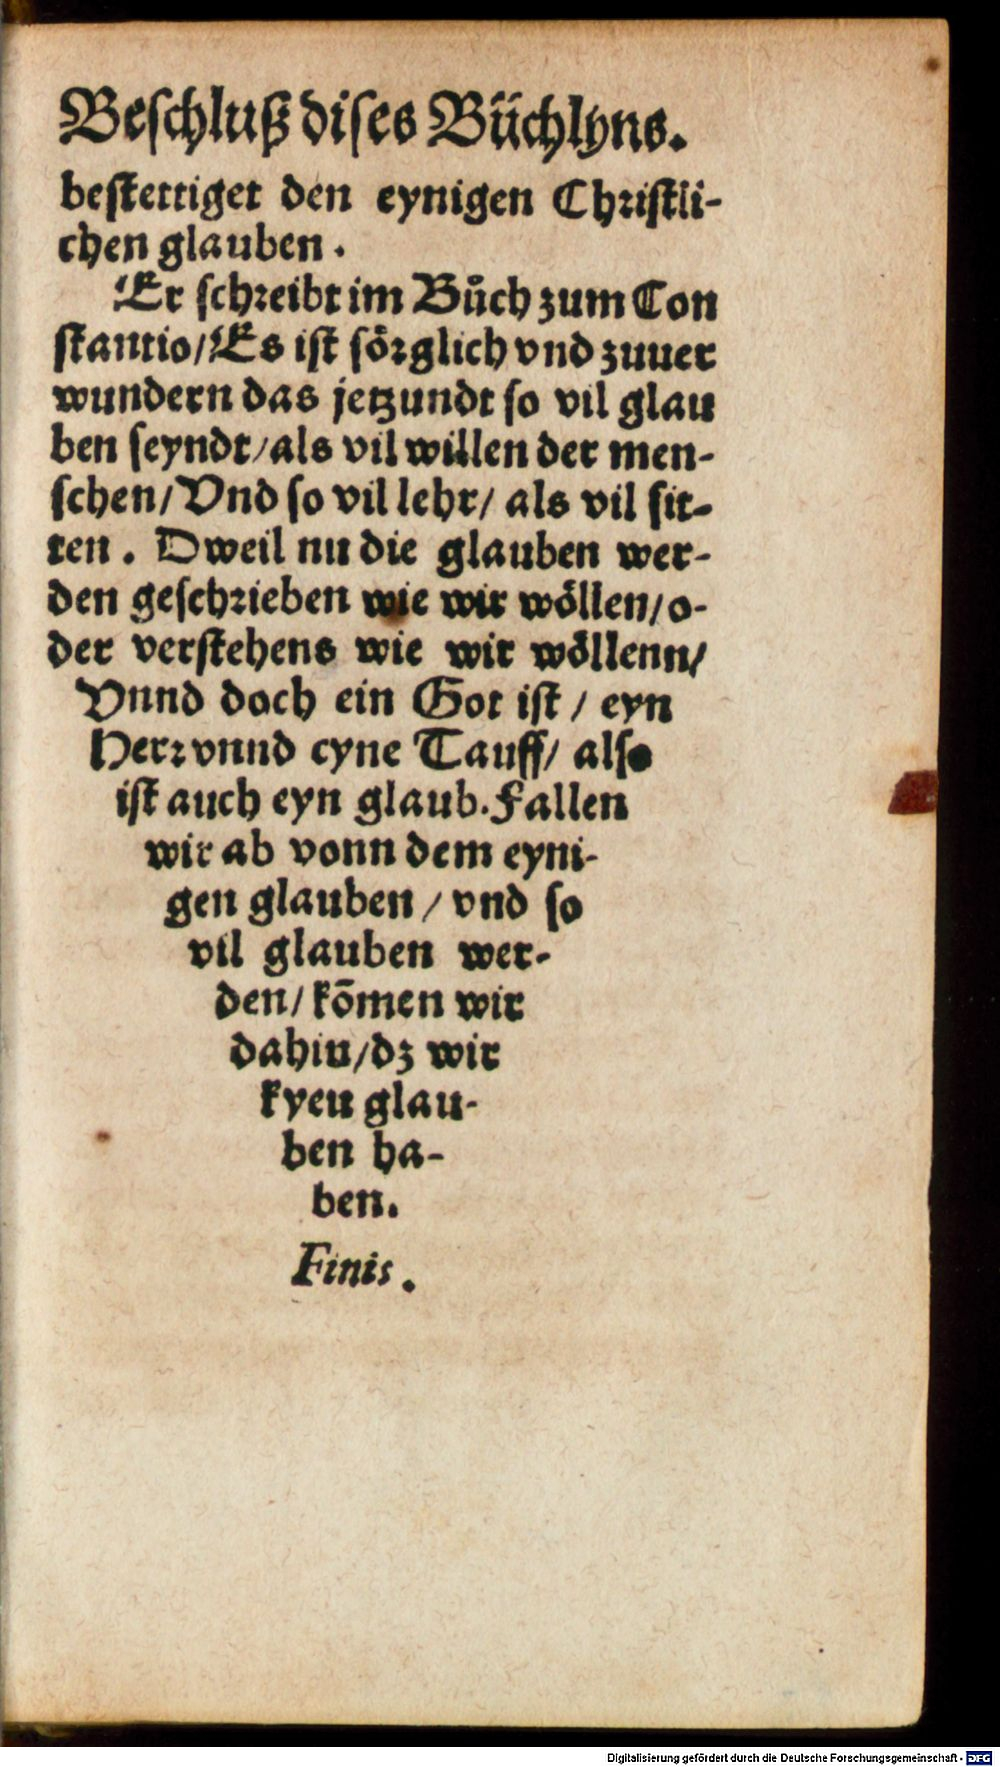 Beschluß dises Büchlyns.
bestettiget den eynigen Christli-
chen glauben.
Er schreibt im Bůch zum Con
stantio/Es ist sörglich vnd zuuer
wundern das jetzundt so vil glau
ben seyndt/als vil willen der men-
schen/Vnd so vil lehr/ als vil sit-
ten. Dweil nu die glauben wer-
den geschrieben wie wir wöllen/o-
der verstehens wie wir wöllenn/
Vnnd doch ein Got ist / eyn
Herr vnnd eyne Tauff/ also
ist auch eyn glaub. Fallen
wir ab vonn dem eyni-
gen glauben / vnd so
vil glauben wer-
den/ kōmen wir
dahin/dz wir
kyen glau-
ben ha-
ben.
Finis.
Digitalisierung gefördert durch die Deutsche Forschungsgemeinschaft - DFG